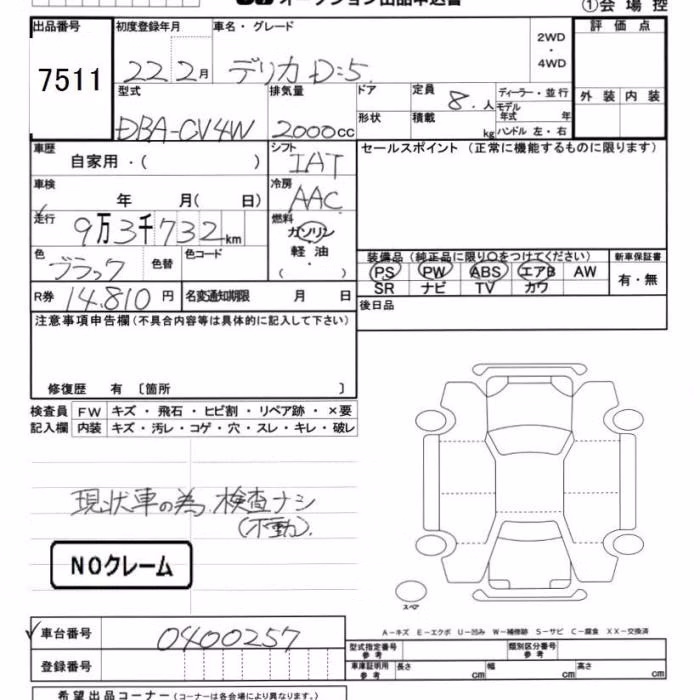 オークション出品申込書
①会場控
出品番号
7511
初度登録年月
22 2月
車名・グレード
デリカD:5
2WD
・
4WD
評価点
外装 内装
型式
DBA-CV4W
排気量
2000cc
ドア
形状
定員
8. 人
積載
kg
ディーラー・並行
モデル
年式 年
ハンドル 左・右
車歴
自家用・( )
シフト
IAT
セールスポイント (正常に機能するものに限ります)
車検
年 月( 日)
冷房
AAC
走行
9万3千732km
燃料
ガソリン
軽油
( ・ )
色
ブラック
色替
色コード
装備品 (純正品に限り○をつけてください)
PS PW ABS エアB AW
SR ナビ TV カワ
新車保証書
有・無
R券 14.810 円
名変通知期限 月 日
後日品
注意事項申告欄(不具合内容等は具体的に記入して下さい)
修復歴 有 〔箇所 〕
検査員 FW キズ・飛石・ヒビ割・リペア跡・×要
記入欄 内装 キズ・汚レ・コゲ・穴・スレ・キレ・破レ
現状車の為.検査ナシ
(不動).
NOクレーム
スペア
A-キズ E-エクボ U-凹み W-補修跡 S-サビ C-腐食 XX-交換済
車台番号
0400257
登録番号
型式指定番号
参考
類別区分番号
参考
車庫証明用
参考
長さ cm 幅 cm 高さ cm
希望出品コーナー (コーナーは各会場により異なります。)